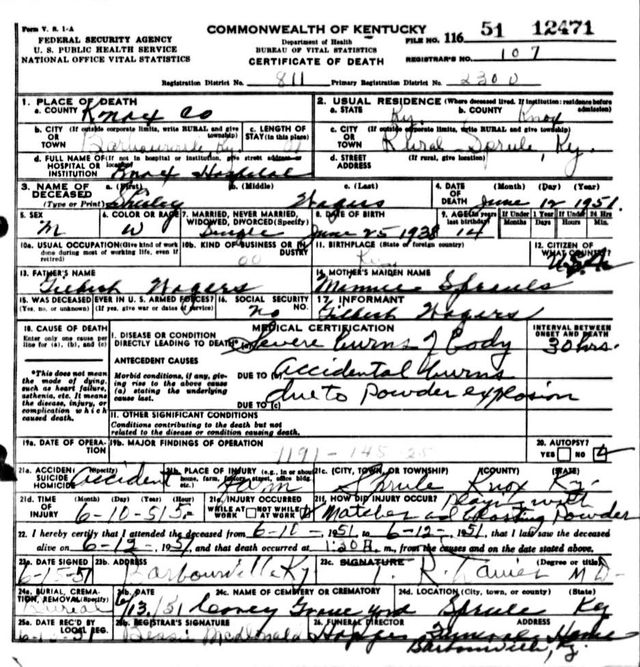 Form V. S. 1-A
FEDERAL SECURITY AGENCY
U. S. PUBLIC HEALTH SERVICE
NATIONAL OFFICE VITAL STATISTICS
COMMONWEALTH OF KENTUCKY
Department of Health
BUREAU OF VITAL STATISTICS
CERTIFICATE OF DEATH
FILE NO. 116 51 12471
REGISTRAR'S NO. 107
Registration District No. 811 Primary Registration District No. 2300
1. PLACE OF DEATH
a. COUNTY Knox Co
b. CITY (If outside corporate limits, write RURAL and give township)
OR TOWN Barbourville, Ky.
c. LENGTH OF STAY (in this place)
d. FULL NAME OF (If not in hospital or institution, give street address or location)
HOSPITAL OR INSTITUTION Knox Hospital
2. USUAL RESIDENCE (Where deceased lived. If institution: residence before admission)
a. STATE Ky. b. COUNTY Knox
c. CITY (If outside corporate limits, write RURAL and give township)
OR TOWN Rural - Sprule, Ky.
d. STREET ADDRESS (If rural, give location)
3. NAME OF DECEASED (Type or Print)
a. (First) b. (Middle) c. (Last)
Wagers
4. DATE OF DEATH (Month) (Day) (Year)
June 12 1951.
5. SEX M
6. COLOR OR RACE W
7. MARRIED, NEVER MARRIED, WIDOWED, DIVORCED (Specify) Single
8. DATE OF BIRTH June 25 1938
9. AGE (In years last birthday) 14 If Under 1 Year Months Days If Under 24 Hrs Hours Min.
10a. USUAL OCCUPATION (Give kind of work done during most of working life, even if retired)
10b. KIND OF BUSINESS OR INDUSTRY 00
11. BIRTHPLACE (State or foreign country) Ky
12. CITIZEN OF WHAT COUNTRY? U.S.A.
13. FATHER'S NAME Gilbert Wagers
14. MOTHER'S MAIDEN NAME Minnie Sprauls
15. WAS DECEASED EVER IN U. S. ARMED FORCES?
(Yes, no, or unknown) (If yes, give war or dates of service)
16. SOCIAL SECURITY NO. no
17. INFORMANT Gilbert Wagers
18. CAUSE OF DEATH
Enter only one cause per line for (a), (b), and (c)
*This does not mean the mode of dying, such as heart failure, asthenia, etc. It means the disease, injury, or complication which caused death.
MEDICAL CERTIFICATION
I. DISEASE OR CONDITION DIRECTLY LEADING TO DEATH* (a) Severe burns of body
INTERVAL BETWEEN ONSET AND DEATH 30 hrs.
ANTECEDENT CAUSES
Morbid conditions, if any, giving rise to the above cause (a) stating the underlying cause last.
DUE TO (b) accidental burns
DUE TO (c) due to powder explosion
II. OTHER SIGNIFICANT CONDITIONS
Conditions contributing to the death but not related to the disease or condition causing death.
19a. DATE OF OPERATION
19b. MAJOR FINDINGS OF OPERATION
20. AUTOPSY? YES NO
21a. ACCIDENT SUICIDE HOMICIDE (Specify) accident
21b. PLACE OF INJURY (e.g., in or about home, farm, factory, street, office bldg., etc.) Farm
21c. (CITY, TOWN, OR TOWNSHIP) (COUNTY) (STATE)
Sprule Knox Ky.
21d. TIME OF INJURY (Month) (Day) (Year) (Hour)
6-10-51
21e. INJURY OCCURRED WHILE AT WORK NOT WHILE AT WORK
21f. HOW DID INJURY OCCUR? Playing with
Matches and Powder
22. I hereby certify that I attended the deceased from 6-11-1951 to 6-12-, 1951, that I last saw the deceased
alive on 6-12-, 1951, and that death occurred at 1:20 m., from the causes and on the date stated above.
23a. DATE SIGNED 6-15-51
23b. ADDRESS Barbourville Ky
23c. SIGNATURE (Degree or title) M D.
24a. BURIAL, CREMATION, REMOVAL (Specify) Burial
24b. DATE 6/13/51
24c. NAME OF CEMETERY OR CREMATORY Grave yard
24d. LOCATION (City, town, or county) (State) Sprule Ky
25a. DATE REC'D BY LOCAL REG.
25b. REGISTRAR'S SIGNATURE Bessie McDonald
26. FUNERAL DIRECTOR ADDRESS
Hopper Funeral Home
Barbourville, Ky.